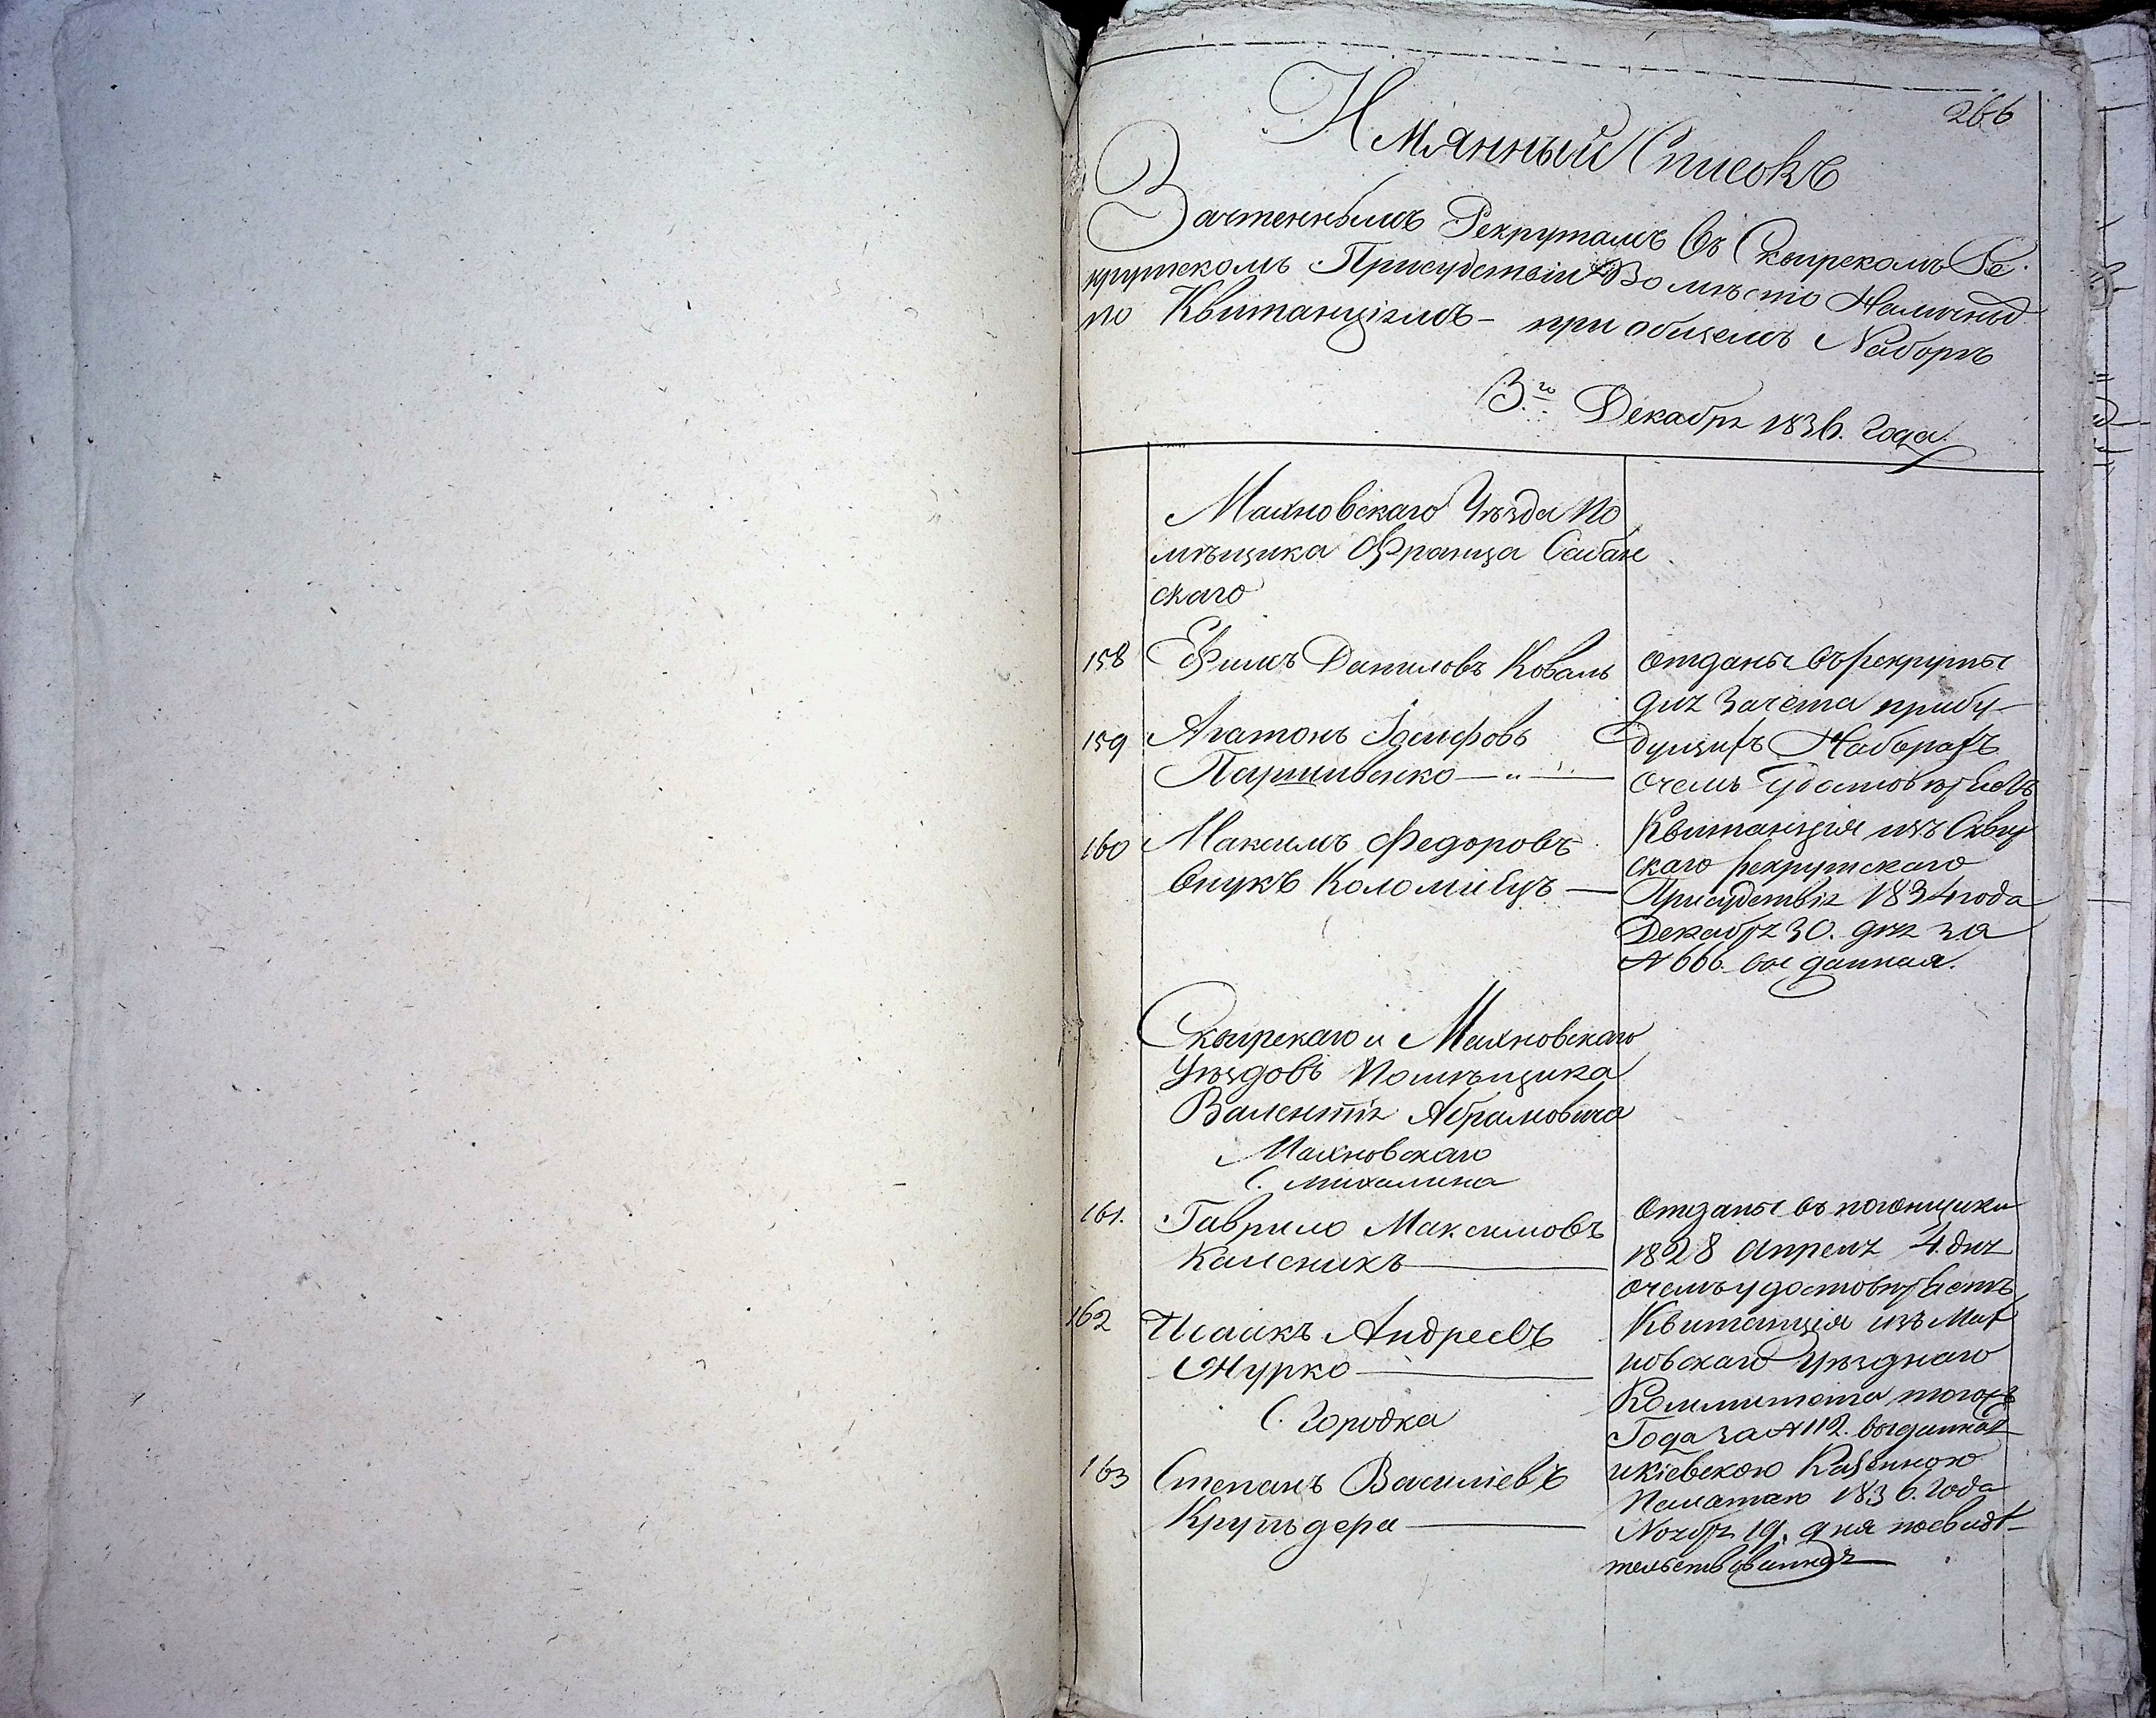 266
Имянный Списокъ
Зачтеннымъ Рекрутамъ въ Сквирскомъ Ре-
крутскомъ Присудствіи Вомѣсто Наличныхъ
по Квитанціямъ – при общемъ Наборѣ
3.го Декабря 1836. Года.
Махновскаго Уѣзда По
мѣщика Франца Собан
скаго
158 Ефимъ Даниловъ Коваль
159 Агатонъ Іосифовъ
Паршивенко
160 Максимъ Федоровъ
внукъ Коломіецъ
отданы въ рекруты
для Зачета прибу-
дущихъ Наборахъ
очемъ Удостовѣряетъ
Квитанція изъ Сквир
скаго рекрутскаго
Присудствія 1834 года
Декабря 30. дня за
№ 666. выданная.
Сквирскаго и Махновскаго
Уѣздовъ Помѣщика
Валентія Абрамовича
Махновскаго
С. Михалина
161. Гаврило Максимовъ
Каленикъ
162 Исаакъ Андреевъ
Журко
С. Городка
163 Степанъ Василіевъ
отданы въ погонщики
1828 Апреля 4. дня
очемъ удостовѣряетъ
Квитанція изъ Мах
новскаго Уѣзднаго
Коммитета тогожъ
Года за № 112. выданная
икіевскою Казенною
Палатою 1836. Года
Ноября 19. дня посвидѣ-
тельствованная